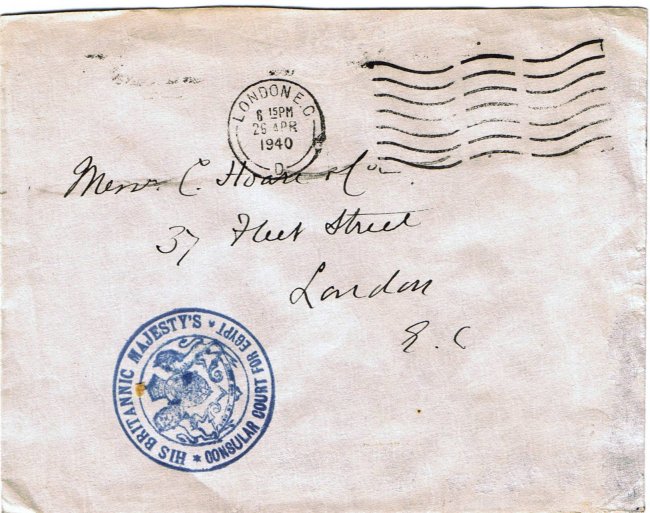 LONDON E.C.
6 15PM
26 APR
1940
D
Messrs C. Hoare & Co.
37 Fleet Street
London
E.C
HIS BRITANNIC MAJESTY'S * CONSULAR COURT FOR EGYPT *